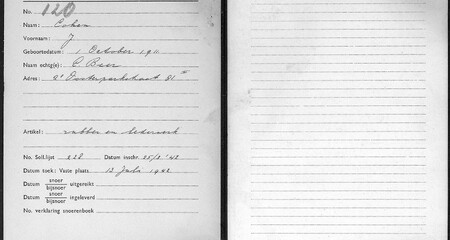 No. 120
Naam: Cohen
Voornaam: J
Geboortedatum: 1 October 1911
Naam echtg(e): C Beer
Adres: 2e Oosterparkstraat 81 III
Artikel: rubber en lederwerk
No. Soll.lijst 228 Datum inschr. 25/2 '42
Datum toek: Vaste plaats 13 Juli 1942
Datum snoer uitgereikt
bijsnoer
Datum snoer ingeleverd
bijsnoer
No. verklaring snoerenboek